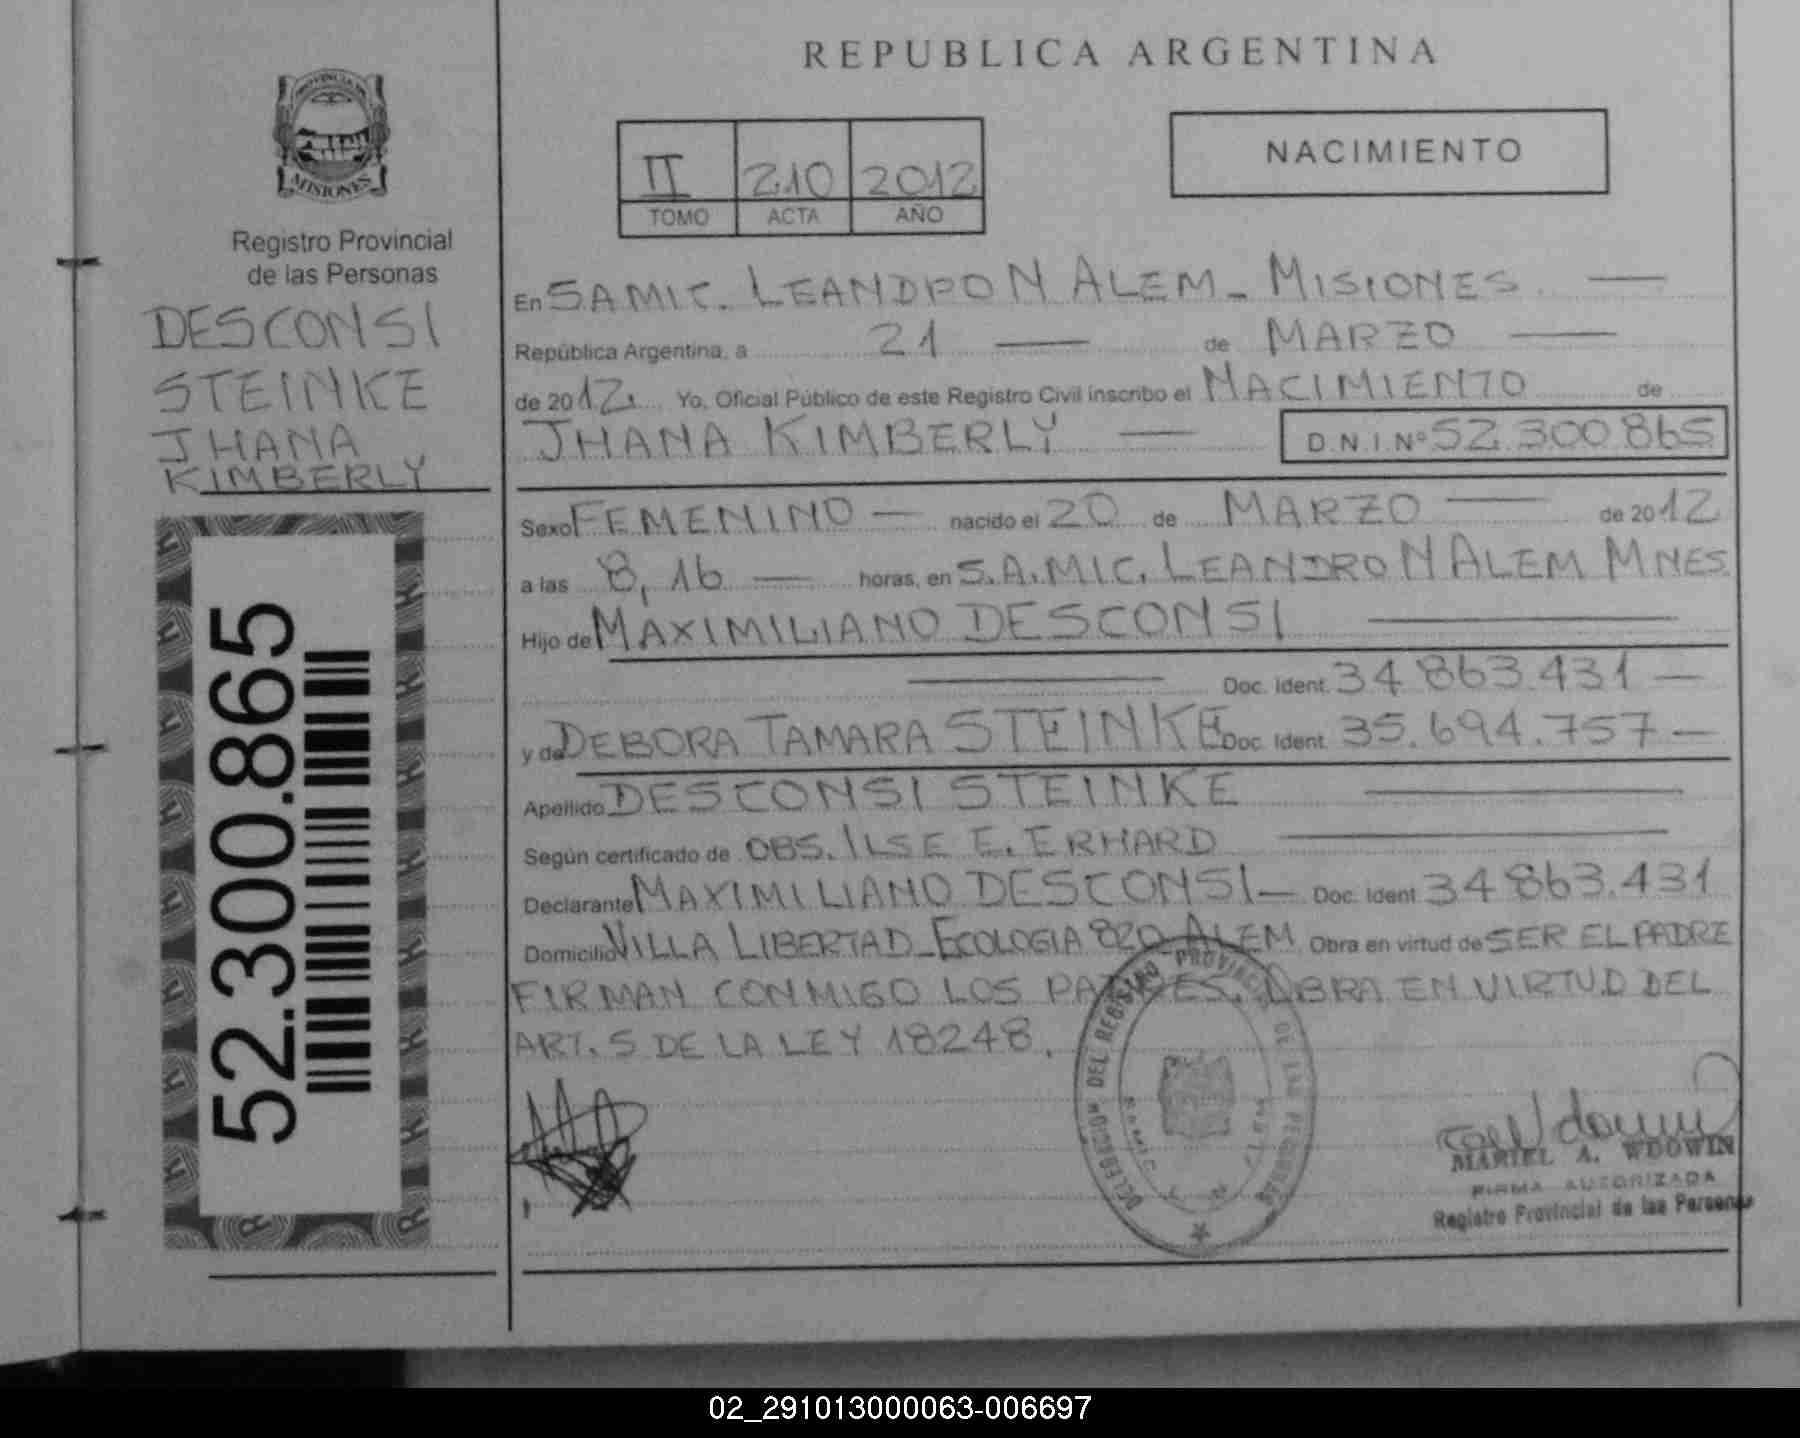 PROVINCIA DE
MISIONES
Registro Provincial
de las Personas
DESCONSI
STEINKE
JHANA
KIMBERLY
52.300.865
REPUBLICA ARGENTINA
II 210 2012
TOMO ACTA AÑO
NACIMIENTO
En S.A.MIC. LEANDRO N ALEM - MISIONES
República Argentina, a 21 de MARZO
de 2012. Yo, Oficial Público de este Registro Civil inscribo el NACIMIENTO de
JHANA KIMBERLY D.N.I.Nº 52.300.865
Sexo FEMENINO nacido el 20 de MARZO de 2012
a las 8,16 horas, en S.A.MIC. LEANDRO N ALEM MNES.
Hijo de MAXIMILIANO DESCONSI
Doc. Ident. 34.863.431
y de DEBORA TAMARA STEINKE Doc. Ident. 35.694.757
Apellido DESCONSI STEINKE
Según certificado de OBS. ILSE E. ERHARD
Declarante MAXIMILIANO DESCONSI Doc. Ident. 34.863.431
Domicilio VILLA LIBERTAD - ECOLOGIA 820 ALEM. Obra en virtud de SER EL PADRE
FIRMAN CONMIGO LOS PADRES. OBRA EN VIRTUD DEL
ART. 5 DE LA LEY 18248.
DELEGACION DEL REGISTRO PROVINCIAL DE LAS PERSONAS
MARIEL A. WDOWIN
FIRMA AUTORIZADA
Registro Provincial de las Personas
02_291013000063-006697